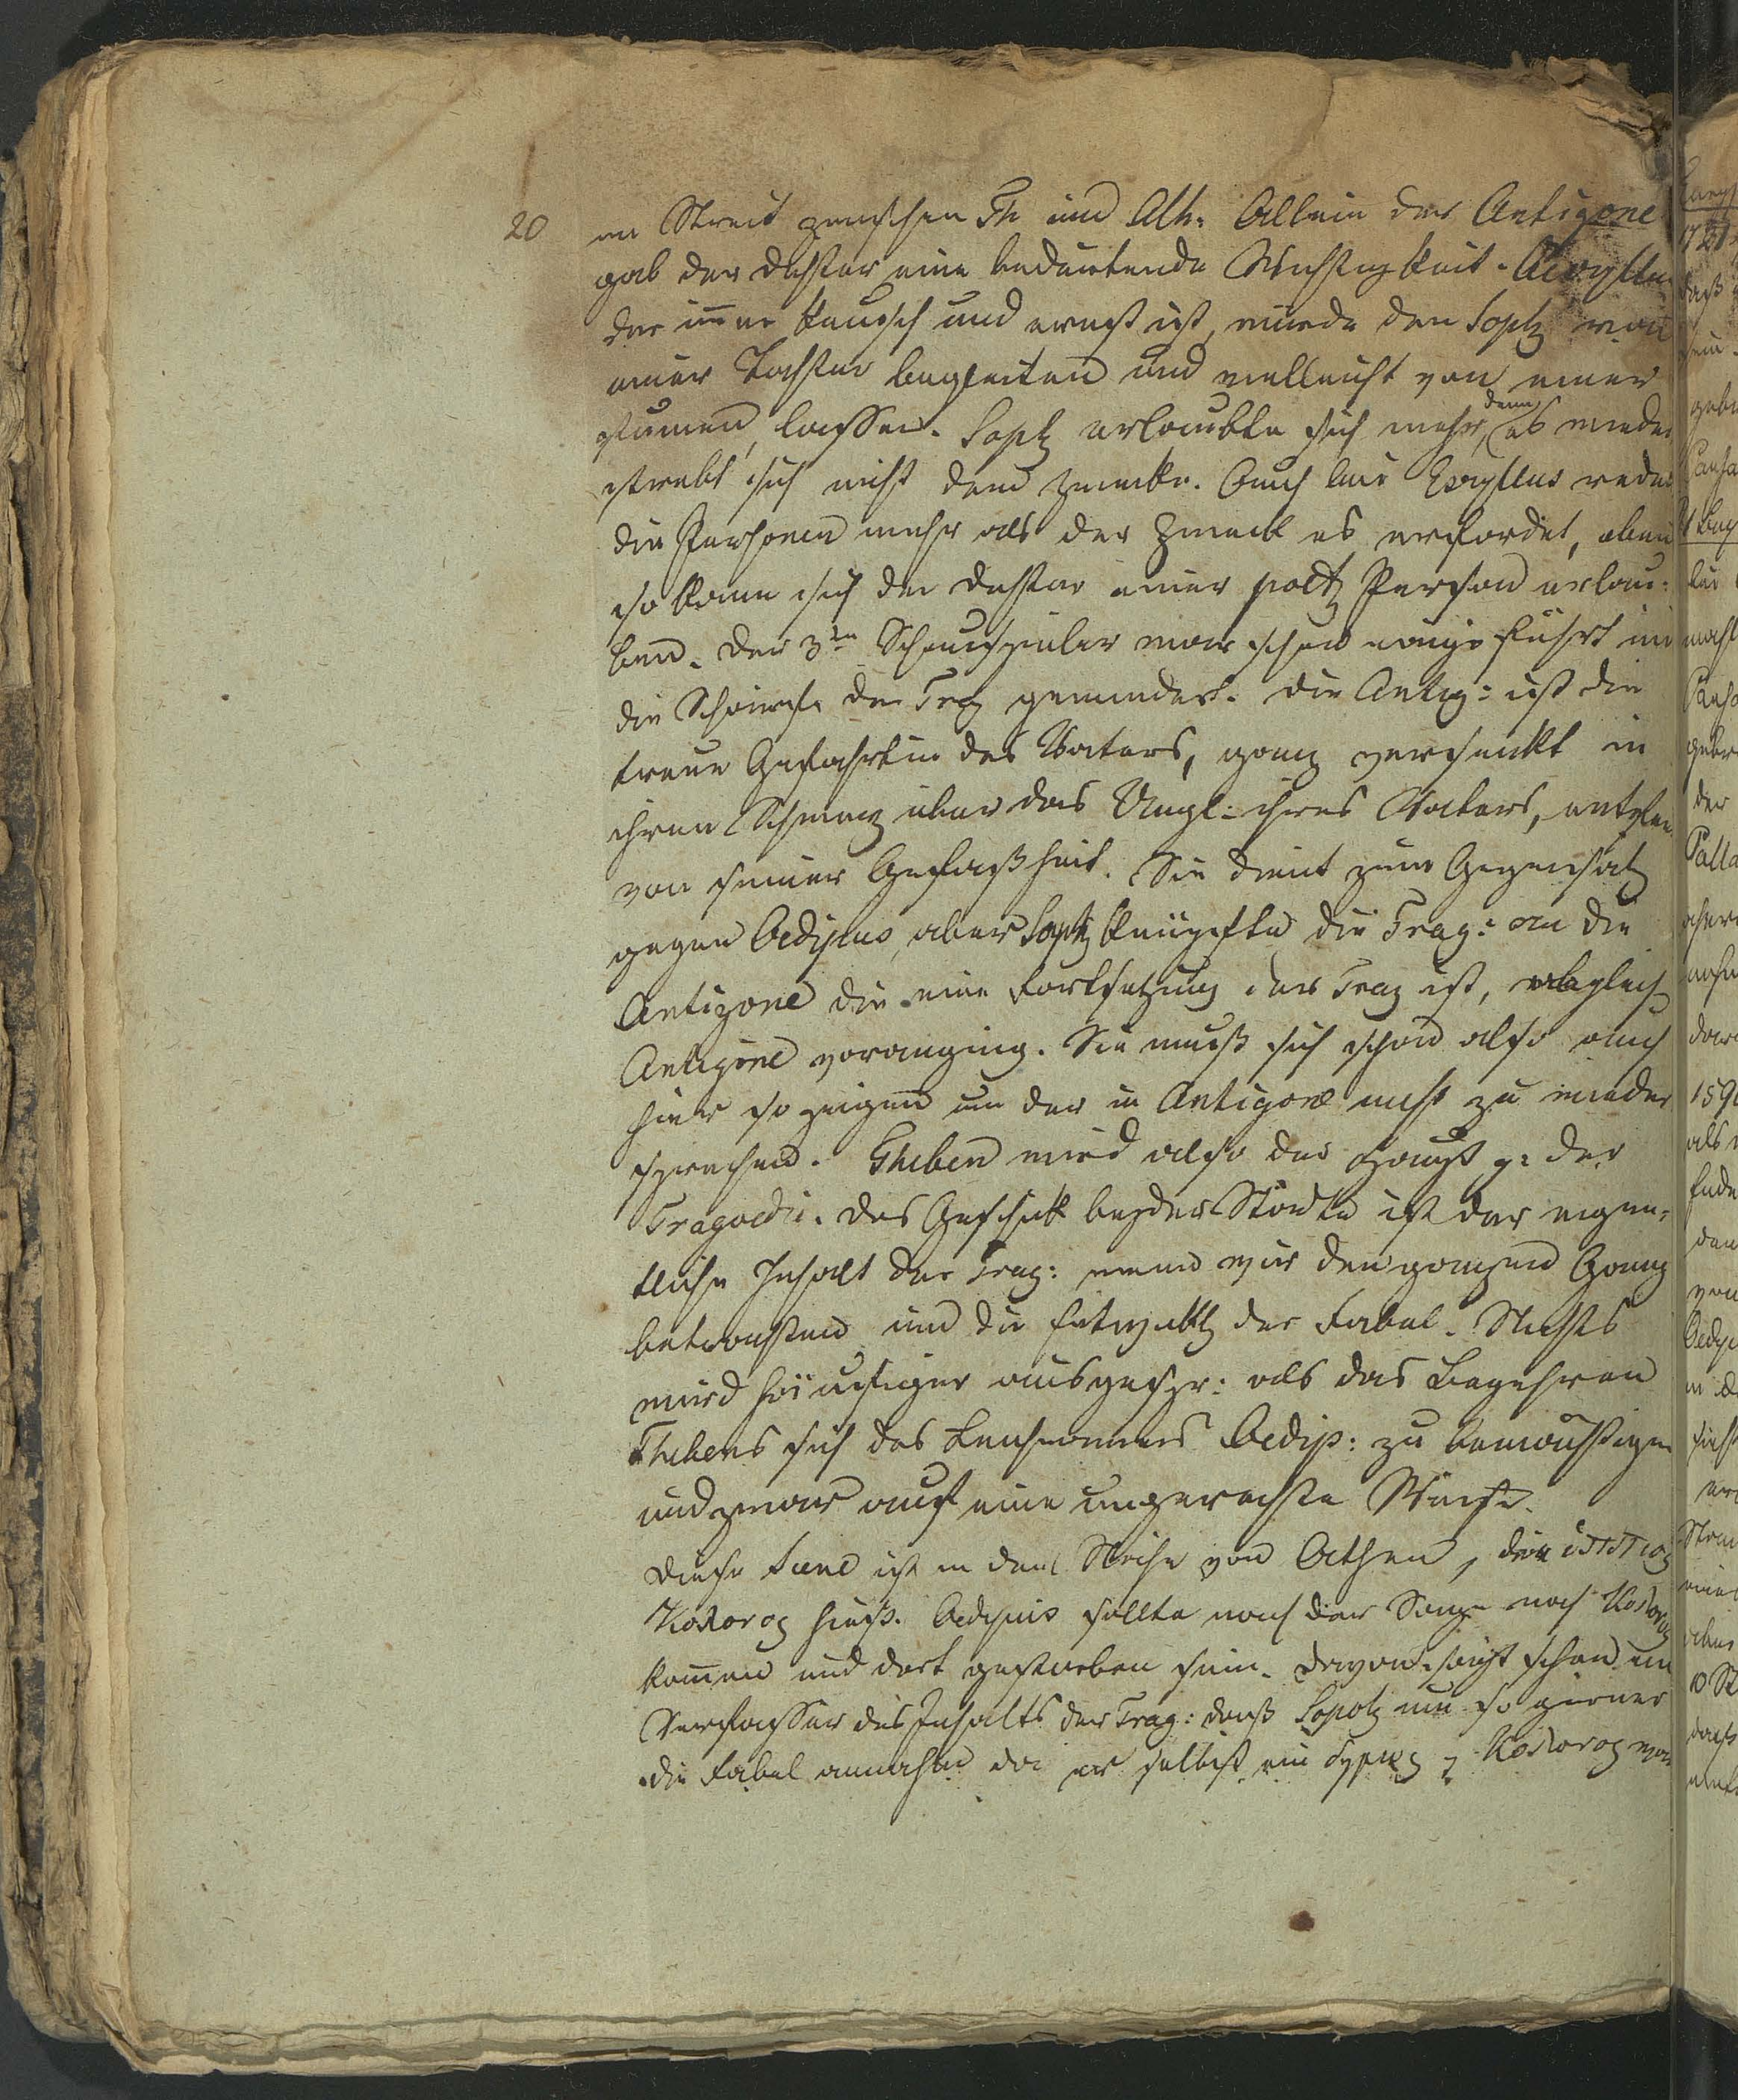 20 en Streit zwischen Th und Ath: Allein der Antigone
gab der Dichter eine bedeutende Wichtigkeit. Aesyllus
der imer keusch und ernst ist, würde den Soph von
einer Tochter begleiten und vielleicht von einer
stumen, lassen. Soph erlaubte sich mehr, denn es wieder
strebt sich nicht dem Zwecke. Auch bei Esyllus reden
die Personen mehr als der Zweck es erfordert, eben
so kann sich der Dichter einer poet Person erlau:
ben. Der 3te Schauspieler war schon eingeführt um
die Schärfe der Trag gemindert. Die Antig: ist die
treue Gefährtin des Vaters, ganz versenkt in
ihren Schmerz über das Ungl: ihres Vaters,
von seiner Gefaßtheit. Sie dient zum Gegensatz
gegen Oedipus, aber Soph knüpfte die Trag: an die
Antigone die eine Fortsetzung der Trag ist, obgleich
Antigone voranging. Sie muß sich schon also auch
hier so zeigen um der in Antigone nicht zu wieder
sprechen. Theben wird also der Haupt g: der
Tragoedie. Das Geschick beyder Städte ist der eigen:
tliche Inhalt der Trag: wenn wir den ganzen Gang
betrachten und die Entwickl der Fabel. Nichts
wird häufiger ausgespr: als das Begehren
Thebens sich des Leichnames Oedip: zu bemächtigen
und zwar auf eine ungerechte Weise.
Diese Scene ist in der Nähe von Athen, die ἵππιος
Κολονος hieß. Oedipus sollte nach der Sage nach Κολονος
komen und dort gestorben sein. Davon sagt schon
Verfasser des Inhalts der Trag: daß Sophg um so gerner
die Fabel annahm da er selbst ein Κολονος war